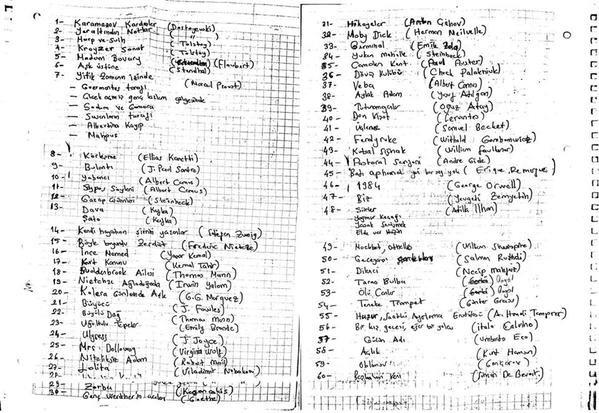 1- Karamazov Kardeşler (Dostoyevski)
2- Yeraltından Notlar (")
3- Harp ve Sulh (Tolstoy)
4- Kroyzer Sonat (Tolstoy)
5- Madam Bovary (Flaubert)
6- Aşk üstüne (Stendhal)
7- Yitik Zamanın izinde (Marcel Proust)
- Guermantes tarafı
- Çiçek açmış genç kızların gölgesinde
- Sodom ve Gomora
- Swanların tarafı
- Albertine Kayıp
- Mahpus
8- Körleşme (Elias Kanetti)
9- Bulantı (J. Paul Sartre)
10- Yabancı (Albert Camus)
11- Sisypos Söyleni (Albert Camus)
12- Gazap Üzümleri (Steinbeck)
13- Dava (Kafka)
Şato (Kafka)
14- Kendi hayatının şiirini yazanlar (Stefan Zweig)
15- Böyle buyurdu Zerdüşt (Frederic Nietzche)
16- İnce Memed (Yaşar Kemal)
17- Kurt Kanunu (Kemal Tahir)
18- Buddenbrook Ailesi (Thomas Mann)
19- Nietzche Ağladığında (Irvin Yalom)
20- Kolera Günlerinde Aşk (G.G. Marquez)
21- Büyücü (J. Fowles)
22- Büyülü Dağ (Thomas Mann)
23- Uğultulu Tepeler (Emily Bronte)
24- Ulysses (J. Joyce)
25- Mrs. Dalloway (Virginia Wolf)
26- Niteliksiz Adam (Robert Musil)
27- Lolita (Vladimir Nabokov)
28-
29- Zorba (Kazancakis)
30- Genç Werther'in acıları (Goethe)
31- Hikayeler (Anton Çehov)
32- Moby Dick (Herman Melville)
33- Germinal (Emile Zola)
34- Yukarı Mahalle (Steinbeck)
35- Camdan Kent (Paul Auster)
36- Dövüş Kulübü (Chuck Palahniuk)
37- Veba (Albert Camus)
38- Aylak Adam (Yusuf Atılgan)
39- Tutunamayanlar (Oğuz Atay)
40- Don Kişot (Cervantes)
41- Üçleme (Samuel Becket)
42- Ferdydurke (Witold Gombrowicz)
43- Kutsal Sığınak (William Faulkner)
44- Pastoral Senfoni (Andre Gide)
45- Batı cephesinde yeni bir şey yok (Erique Remarque)
46- 1984 (George Orwell)
47- Biz (Yevgeni Zamyatin)
48- Şiirler (Attila İlhan)
Yağmur Kaçağı
Yasak Sevişmek
Elde var Hüzün
49- Macbeth, Othello (William Shakespeare)
50- Geceyarısı Çocukları (Salman Rushdi)
51- Dilenci (Necip Mahfuz)
52- Taras Bulba (Gogol)
53- Ölü Canlar (Gogol)
54- Teneke Trampet (Günter Grass)
55- Huzur, Saatleri Ayarlama Enstitüsü (A. Hamdi Tanpınar)
56- Bir kış gecesi eğer bir yolcu (Italo Calvino)
57- Gülün Adı (Umberto Eco)
58- Açlık (Knut Hamsun)
59- Oblomov (Gonçarov)
60- (Simon De Beauvoir)